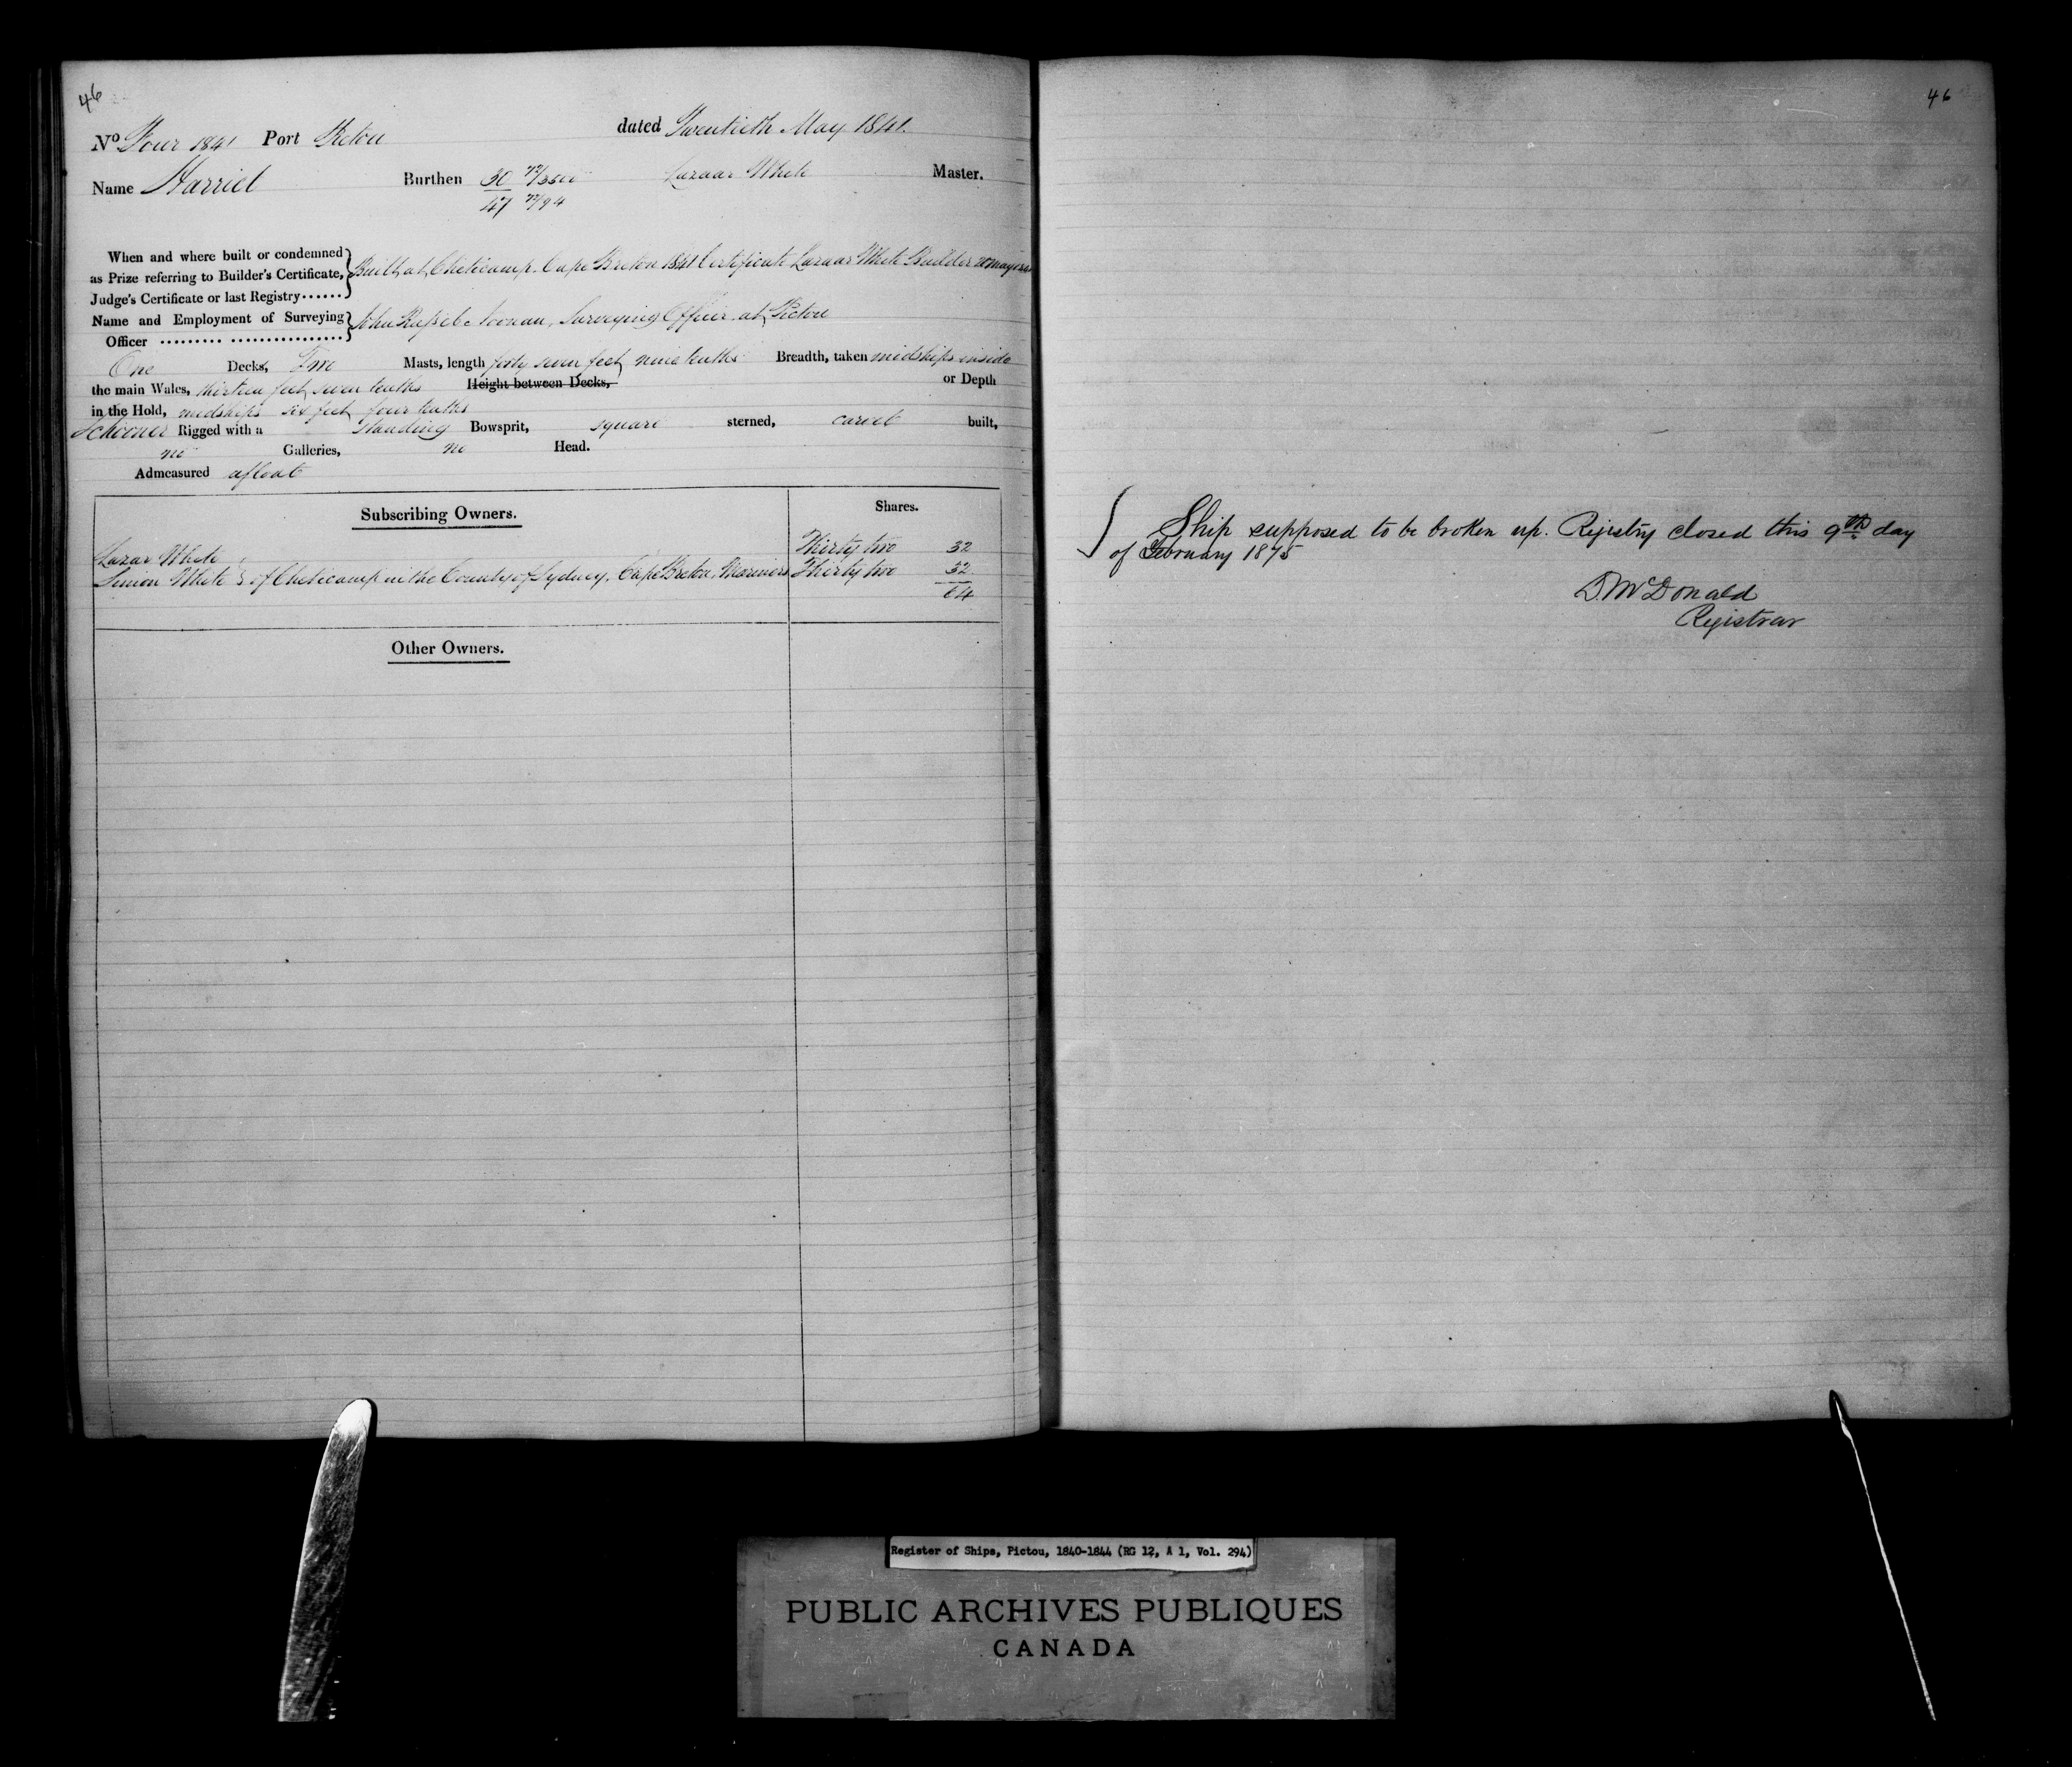 46
No Four 1841 Port Pictou dated Twentieth May 1841.
Name Harriet Burthen 30 Lazaar White Master.
47
When and where built or condemned
as Prize referring to Builder's Certificate,
Judge's Certificate or last Registry......
Built at Cheticamp. Cape Breton 1841 Certificate Lazaar White Builder 20 May
Name and Employment of Surveying
Officer ......... ................
John Russel Noonan, Surveying Officer at Pictou
One Decks, Two Masts, length forty seven feet nine tenths Breadth, taken midships inside
the main Wales, thirteen feet seven tenths Height between Decks, or Depth
in the Hold, midships six feet four tenths
Schooner Rigged with a Standing Bowsprit, square sterned, carvel built,
no Galleries, no Head.
Admeasured afloat
Subscribing Owners. Shares.
Lazar White Thirty two 32
Simon White of Cheticamp in the County of Sydney, Cape Breton, Mariners Thirty two 32
64
Other Owners.
46
Ship supposed to be broken up. Registry closed this 9th day
of February 1875
D. McDonald
Registrar
Register of Ships, Pictou, 1840-1844 (RG 12, A 1, Vol. 294)
PUBLIC ARCHIVES PUBLIQUES
CANADA